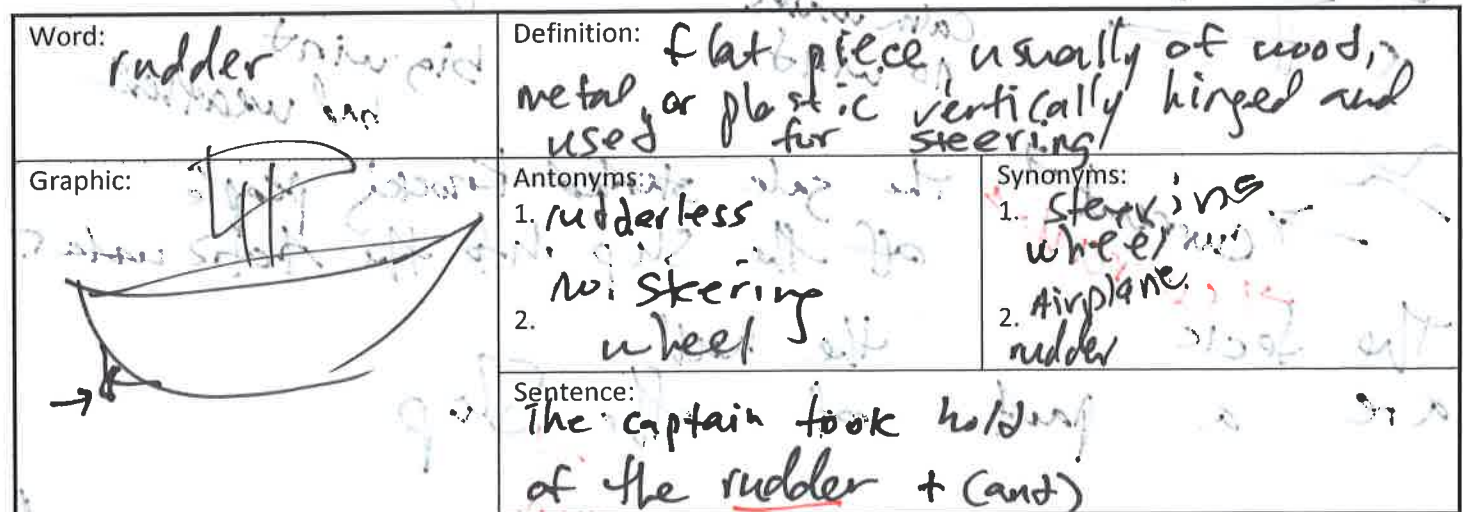 Word: rudder
Definition: flat piece, usually of wood,
metal, or plastic vertically hinged and
used for steering
Graphic:
Antonyms:
1. rudderless
no steering
2. wheel
Synonyms:
1. steering
wheel
Airplane
2. rudder
Sentence:
The captain took hold
of the rudder + (and)